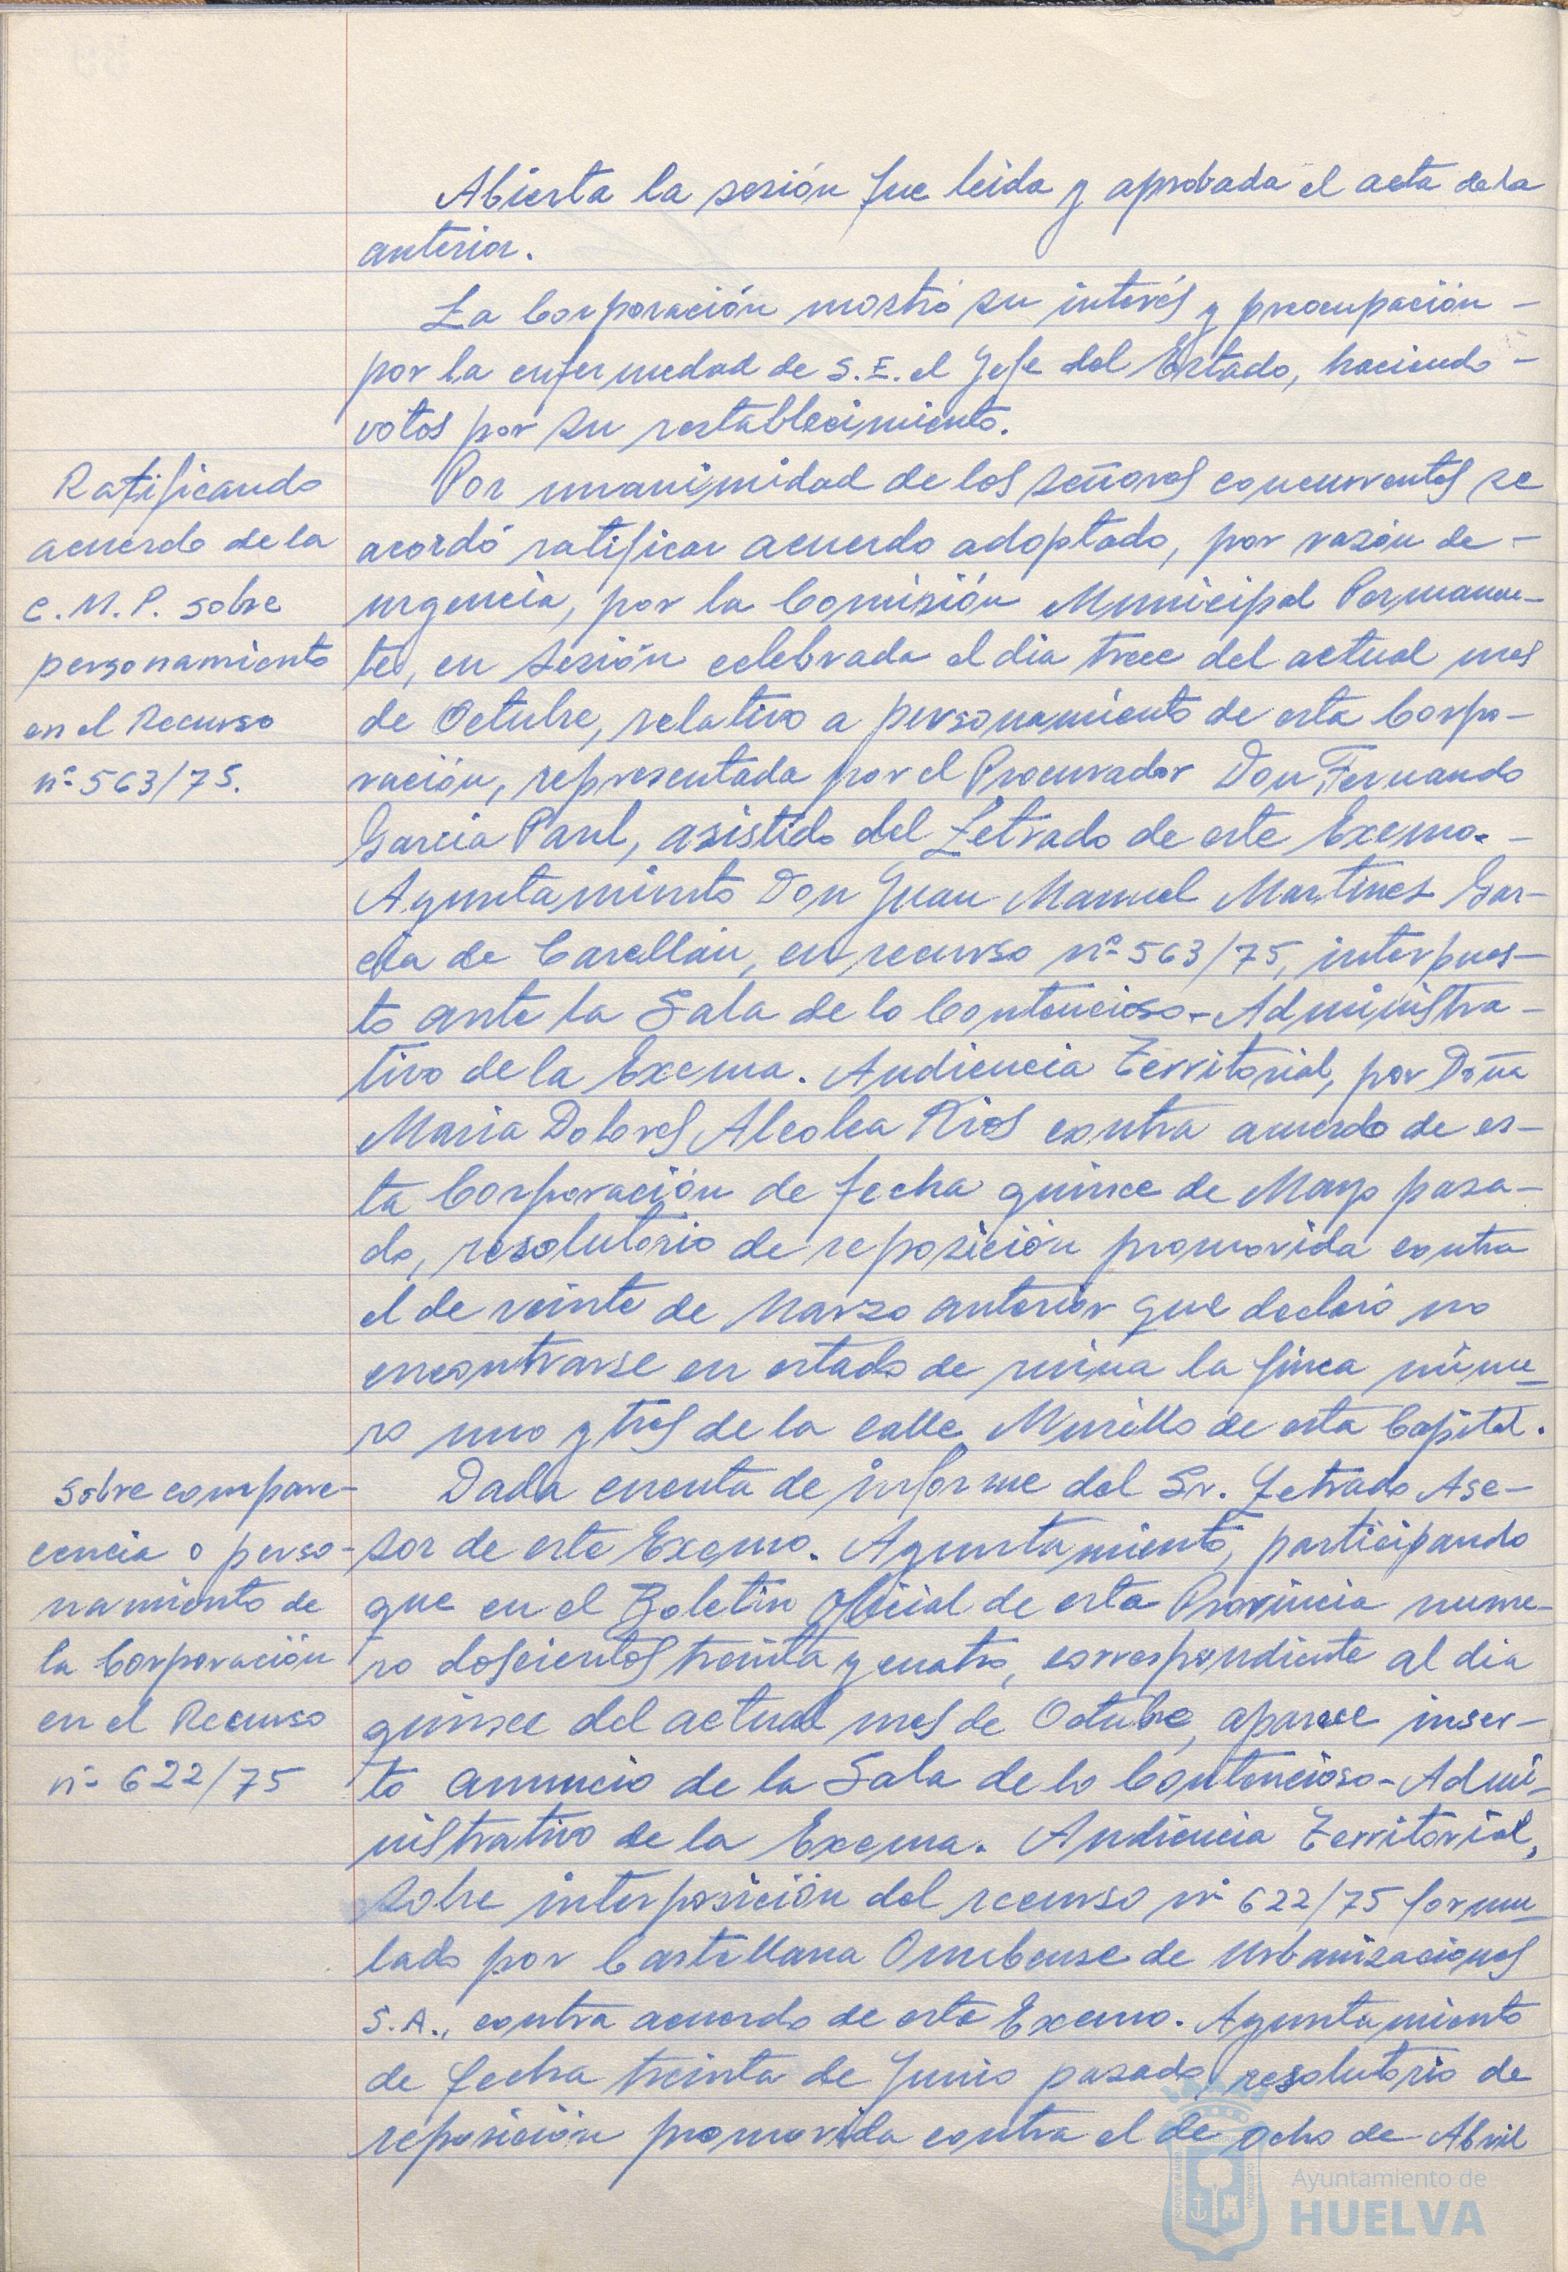 Abierta la sesión fue leida y aprobada el acta de la
anterior.
La Corporación mostró su interés y preocupación -
por la enfermedad de S.E. el Jefe del Estado, haciendo -
votos por su restablecimiento.
Ratificando
acuerdo de la
C.M.P. sobre
personamiento
en el Recurso
nº 563/75.
Por unanimidad de los señores concurrentes se
acordó ratificar acuerdo adoptado, por razón de -
urgencia, por la Comisión Municipal Permanen-
te, en sesión celebrada el dia trece del actual mes
de Octubre, relativo a personamiento de esta Corpo-
ración, representada por el Procurador Don Fernando
Garcia Paul, asistido del Letrado de este Excmo. -
Ayuntamiento Don Juan Manuel Martinez Gar-
cia de Casellán, en recurso nº 563/75, interpues-
to ante la Sala de lo Contencioso-Administra-
tivo de la Excma. Audiencia Territorial, por Doña
Maria Dolores Alcolea Rios contra acuerdo de es-
ta Corporación de fecha quince de Mayo pasa-
do, resolutorio de reposición promovida contra
el de veinte de Marzo anterior que declaró no
encontrarse en estado de ruina la finca núme-
ro uno y tres de la calle Murillo de esta Capital.
Sobre compare-
cencia o perso-
namiento de
la Corporación
en el Recurso
nº 622/75
Dada cuenta de informe del Sr. Letrado Ase-
sor de este Excmo. Ayuntamiento, participando
que en el Boletin Oficial de esta Provincia nume-
ro doscientos treinta y cuatro, correspondiente al dia
quince del actual mes de Octubre, aparece inser-
to anuncio de la Sala de lo Contencioso-Admi-
nistrativo de la Excma. Audiencia Territorial,
sobre interposición del recurso nº 622/75 formu-
lado por Castellana Onubense de Urbanizaciones
S.A., contra acuerdo de este Excmo. Ayuntamiento
de fecha treinta de Junio pasado, resolutorio de
reposición promovida contra el de ocho de Abril
Ayuntamiento de
HUELVA